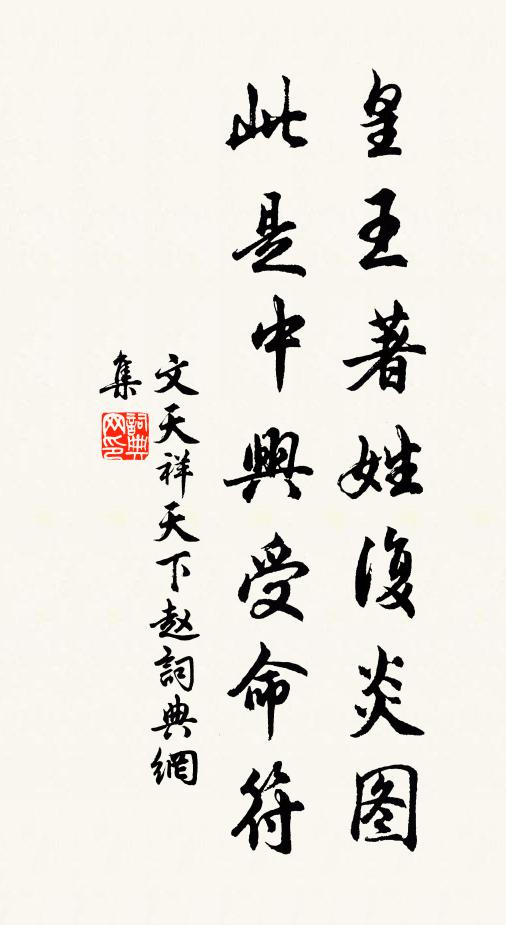 皇王著姓復炎图
此是中興受命符
文天祥天下赵詞典網
集
詞典
网印